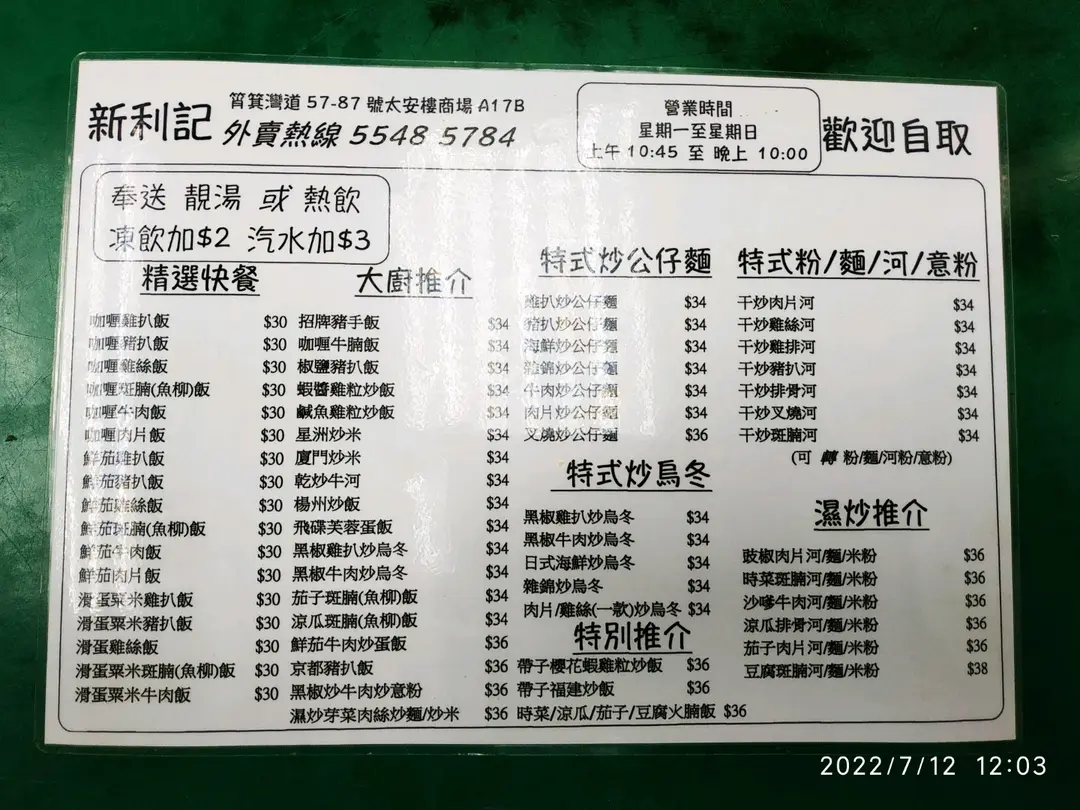 新利記
筲箕灣道 57-87 號太安樓商場 A17B
外賣熱線 5548 5784
營業時間
星期一至星期日
上午 10:45 至 晚上 10:00
歡迎自取
奉送 靚湯 或 熱飲
凍飲加$2 汽水加$3
精選快餐
咖喱雞扒飯 $30
咖喱豬扒飯 $30
咖喱雞絲飯 $30
咖喱斑腩(魚柳)飯 $30
咖喱牛肉飯 $30
咖喱肉片飯 $30
鮮茄雞扒飯 $30
鮮茄豬扒飯 $30
鮮茄雞絲飯 $30
鮮茄斑腩(魚柳)飯 $30
鮮茄牛肉飯 $30
鮮茄肉片飯 $30
滑蛋粟米雞扒飯 $30
滑蛋粟米豬扒飯 $30
滑蛋雞絲飯 $30
滑蛋粟米斑腩(魚柳)飯 $30
滑蛋粟米牛肉飯 $30
大廚推介
招牌豬手飯 $34
咖喱牛腩飯 $34
椒鹽豬扒飯 $34
蝦醬雞粒炒飯 $34
鹹魚雞粒炒飯 $34
星洲炒米 $34
廈門炒米 $34
乾炒牛河 $34
楊州炒飯 $34
飛碟芙蓉蛋飯 $34
黑椒雞扒炒烏冬 $34
黑椒牛肉炒烏冬 $34
茄子斑腩(魚柳)飯 $34
涼瓜斑腩(魚柳)飯 $34
鮮茄牛肉炒蛋飯 $36
京都豬扒飯 $36
黑椒炒牛肉炒意粉 $36
濕炒芽菜肉絲炒麵/炒米 $36
特式炒公仔麵
雞扒炒公仔麵 $34
豬扒炒公仔麵 $34
海鮮炒公仔麵 $34
雜錦炒公仔麵 $34
牛肉炒公仔麵 $34
肉片炒公仔麵 $34
叉燒炒公仔麵 $36
特式炒烏冬
黑椒雞扒炒烏冬 $34
黑椒牛肉炒烏冬 $34
日式海鮮炒烏冬 $34
雜錦炒烏冬 $34
肉片/雞絲(一款)炒烏冬 $34
特別推介
帶子櫻花蝦雞粒炒飯 $36
帶子福建炒飯 $36
時菜/涼瓜/茄子/豆腐火腩飯 $36
特式粉/麵/河/意粉
干炒肉片河 $34
干炒雞絲河 $34
干炒雞排河 $34
干炒豬扒河 $34
干炒排骨河 $34
干炒叉燒河 $34
干炒斑腩河 $34
(可 轉 粉/麵/河粉/意粉)
濕炒推介
豉椒肉片河/麵/米粉 $36
時菜斑腩河/麵/米粉 $36
沙嗲牛肉河/麵/米粉 $36
涼瓜排骨河/麵/米粉 $36
茄子肉片河/麵/米粉 $36
豆腐斑腩河/麵/米粉 $38
2022/7/12 12:03